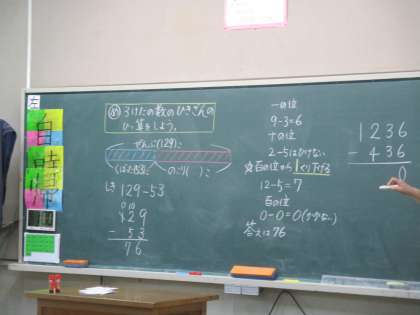 左
3けたの数のひきざんの
ひっ算をしよう。
ぜんぶ(129)こ
くばった(53)こ
のこり( )こ
しき 129-53
0 10
129
- 53
76
一の位
9-3=6
十の位
2-5はひけない
百の位から1くり下げる
12-5=7
百の位
0-0=0(かかない)
答えは76
1236
- 436
0